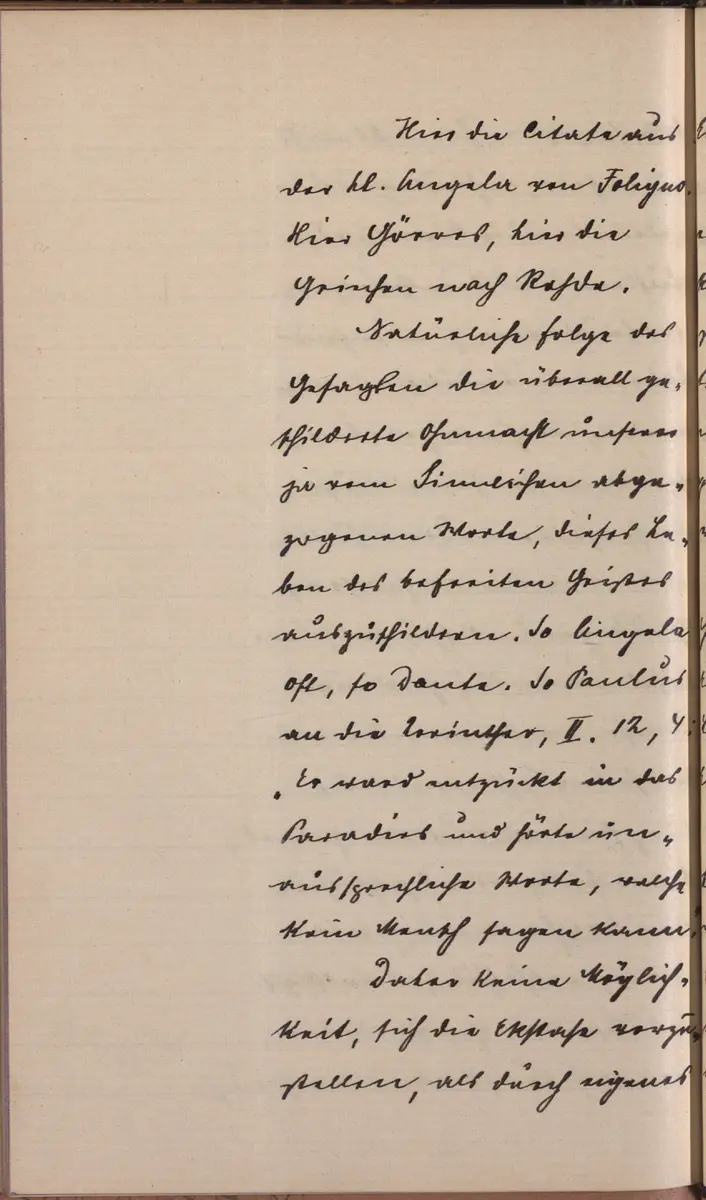 Hier die Citate aus
der hl. Angela von Foligno.
Hier Görres, hier die
Griechen nach Rohde.
Natürliche Folge des
Gesagten die überall ge-
schilderte Ohnmacht unserer
ja vom Sinnlichen abge-
zogenen Worte, dieses Le-
ben des befreiten Geistes
auszuschildern. So Angela
oft, so Dante. So Paulus
an die Corinther, II. 12, 4:
„Er ward entzückt in das
Paradies und hörte un-
aussprechliche Worte, welche
kein Mensch sagen kann.
Daher keine Möglich-
keit, sich die Ekstase vorzu-
stellen, als durch eigenes